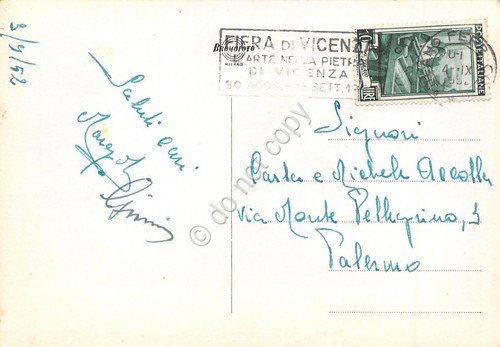 3/9/52
Saluti cari
Buonofoto
MILANO
FIERA DI VICENZA
ARTE NELLA PIETRA
DI VICENZA
30 AGOS. - SETT. 1
POSTE ITALIANE
LIRE
Signori
Carta e Michele Accolla
Via Monte Pellegrino, 3
Palermo
© do not copy